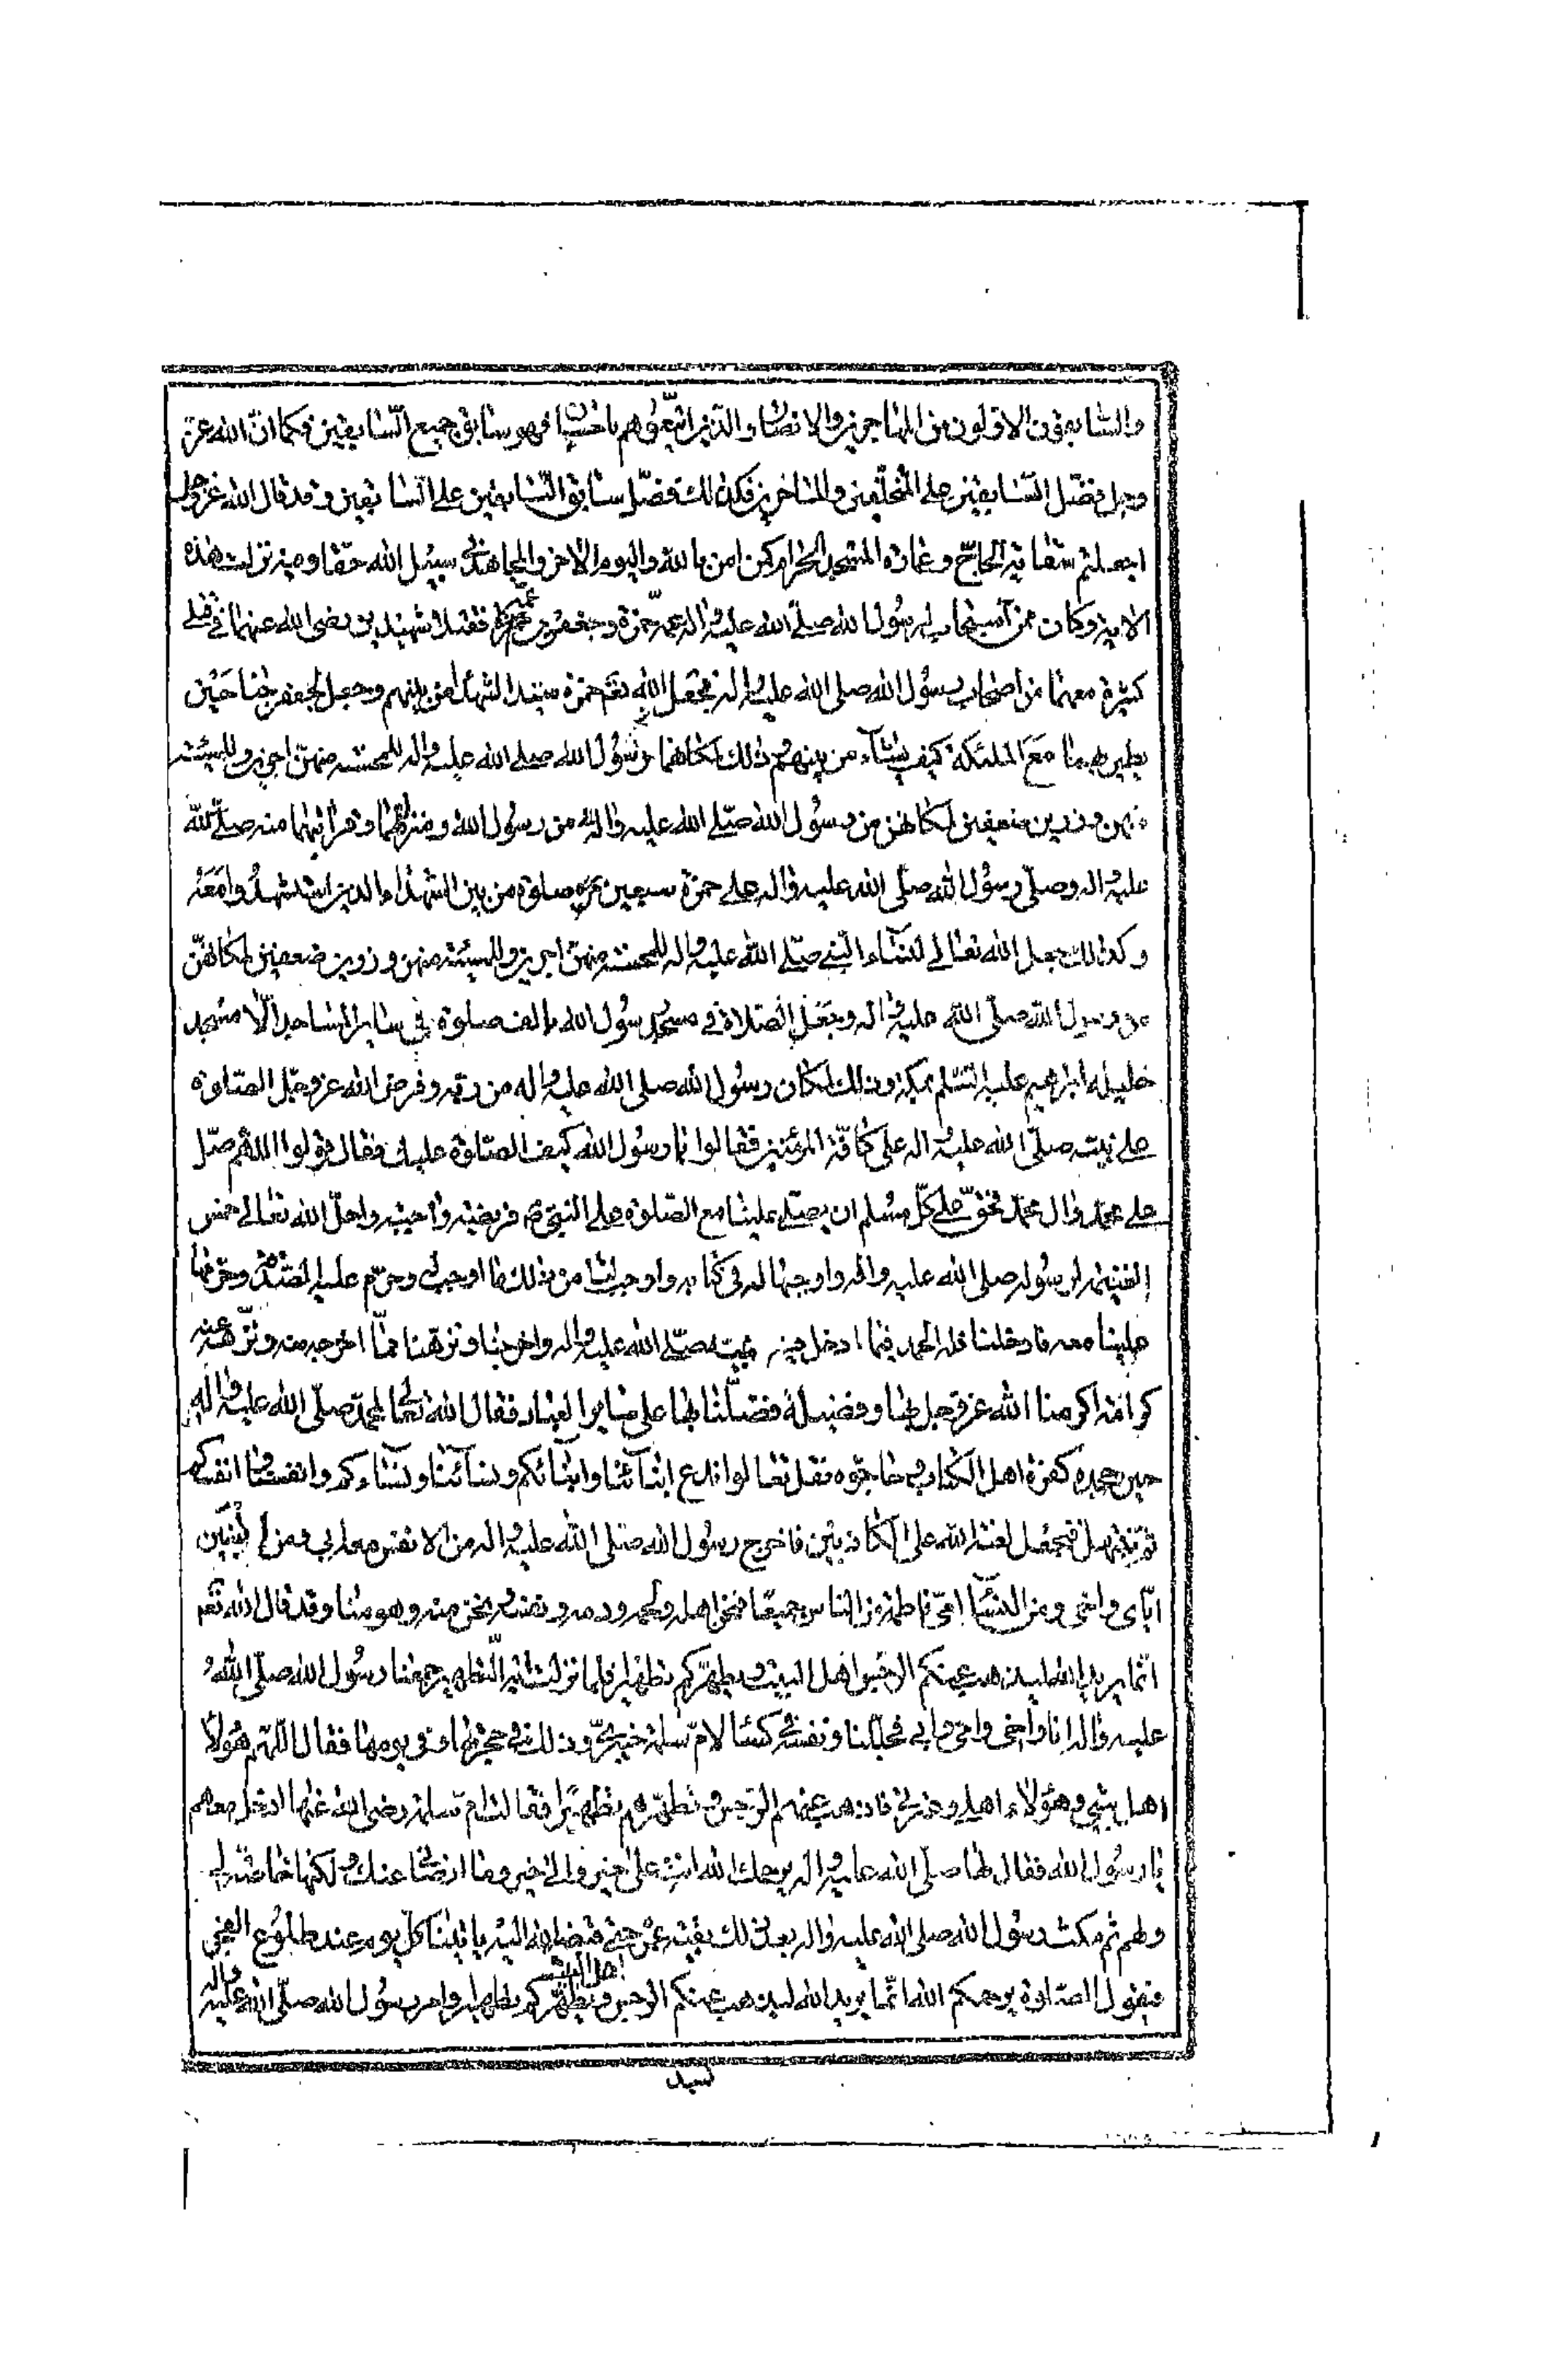 والسابقون الاولون من المهاجرين والانصار والذين اتبعوهم باحسان فهو سابق جميع السابقين فكما ان الله عز
وجل فضل السابقين على المتخلفين والمتاخرين فكذلك فضل سابق السابقين على السابقين وقد قال الله عز وجل
اجعلتم سقاية الحاج وعمارة المسجد الحرام كمن امن بالله واليوم الاخر والمجاهد في سبيل الله حقا وفيه نزلت هذه
الاية وكان ممن استجاب لرسول الله صلى الله عليه واله عمه حمزة وجعفر بن عمه فقتلا شهيدين رضى الله عنهما في قتلى
كثيرة معهما من اصحاب رسول الله صلى الله عليه واله فجعل الله تعم حمزة سيد الشهداء من بينهم وجعل لجعفر جناحين
يطير بهما مع الملئكة كيف يشاء من بينهم وذلك لمكانهما من رسول الله صلى الله عليه واله للمحسنة منهن اجرين وللمسيئة
منهن وزرين ضعفين لمكانهن من رسول الله صلى الله عليه واله من رسول الله ومنزلتهما وقرابتهما منه صلى الله
عليه واله وصلى رسول الله صلى الله عليه واله على حمزة سبعين صلوة من بين الشهداء الذين استشهدوا معه
وكذلك جعل الله تعالى لنساء النبي صلى الله عليه واله للمحسنة منهن اجرين وللمسيئة منهن وزرين ضعفين لمكانهن
من رسول الله صلى الله عليه واله وجعل الصلاة في مسجد رسول الله بالف صلوة في سائر المساجد الا مسجد
خليله ابرهيم عليه السلم بمكة وذلك لمكان رسول الله صلى الله عليه واله من ربه وفرض الله عز وجل الصلوة
على نبيه صلى الله عليه واله على كافة المؤمنين فقالوا يا رسول الله كيف الصلوة عليك فقال قولوا اللهم صل
على محمد وال محمد فحق على كل مسلم ان يصلى علينا مع الصلوة على النبى ص فريضة واجبة واحل الله تعالى خمس
الغنيمة لرسوله صلى الله عليه واله واوجبها له في كتابه واوجب لنا من ذلك ما اوجب له وحرم عليه الصدقة وحرمها
علينا معه فادخلنا فله الحمد فيما ادخل فيه نبيه صلى الله عليه واله واخرجنا ونزهنا مما اخرجه منه ونزهه عنه
كرامة اكرمنا الله عز وجل بها وفضيلة فضلنا بها على سائر العباد فقال الله تعالى لمحمد صلى الله عليه واله
حين جحده كفرة اهل الكتاب وحاجوه فقل تعالوا ندع ابنائنا وابنائكم ونسائنا ونساءكم وانفسنا وانفسكم
ثم نبتهل فنجعل لعنة الله على الكاذبين فاخرج رسول الله صلى الله عليه واله من الانفس معه ابي ومن البنين
اياى واخى ومن النساء امى فاطمة من الناس جميعا فنحن اهله ولحمه ودمه ونفسه ونحن منه وهو منا وقد قال الله تعم
انما يريد الله ليذهب عنكم الرجس اهل البيت ويطهركم تطهيرا فلما نزلت اية التطهير جمعنا رسول الله صلى الله
عليه واله انا واخى وامى وابى فجللنا ونفسه في كساء لام سلمة خيبرى وذلك في حجرتها وفي يومها فقال اللهم هؤلاء
اهل بيتى وهؤلاء اهلى وعترتى فاذهب عنهم الرجس وتطهرهم تطهيرا فقالت ام سلمة رضى الله عنها ادخل معهم
يا رسول الله فقال لها صلى الله عليه واله يرحمك الله انت على خير والى خير وما ارضانى عنك ولكنها خاصة لى
ولهم ثم مكث رسول الله صلى الله عليه واله بعد ذلك بقية عمره حتى قبضه الله اليه ياتينا كل يوم عند طلوع الفجر
فيقول الصلوة يرحمكم الله انما يريد الله ليذهب عنكم الرجس اهل البيت ويطهركم تطهيرا وامر رسول الله صلى الله عليه واله
لسد